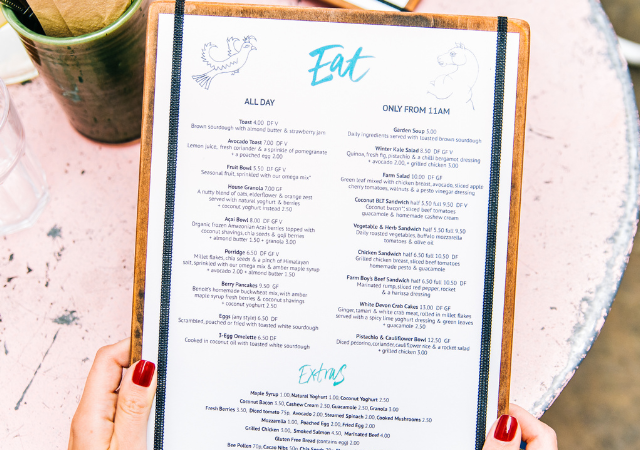 Eat
ALL DAY
Toast 4.00 DF V
Brown sourdough with almond butter & strawberry jam
Avocado Toast 7.00 DF V
Lemon juice, fresh coriander & a sprinkle of pomegranate
+ a poached egg 2.00
Fruit Bowl 5.50 DF GF V
Seasonal fruit, sprinkled with our omega mix*
House Granola 7.00 GF
A nutty blend of oats, elderflower & orange zest
served with natural yoghurt & berries
+ coconut yoghurt instead 2.50
Açai Bowl 8.00 DF GF V
Organic frozen Amazonian Açai berries topped with
coconut shavings, chia seeds & goji berries
+ almond butter 1.50 + granola 3.00
Porridge 6.50 DF GF V
Millet flakes, chia seeds & a pinch of Himalayan
salt, sprinkled with our omega mix & amber maple syrup
+ avocado 2.00 + almond butter 1.50
Berry Pancakes 9.50 GF
Benoit's homemade buckwheat mix, with amber
maple syrup fresh berries & coconut shavings
+ coconut yoghurt 2.50
Eggs (any style) 6.50 DF
Scrambled, poached or fried with toasted white sourdough
3-Egg Omelette 6.50 DF
Cooked in coconut oil with toasted white sourdough
ONLY FROM 11AM
Garden Soup 5.00
Daily ingredients served with toasted brown sourdough
Winter Kale Salad 8.50 DF GF V
Quinoa, fresh fig, pistachio & a chilli bergamot dressing
+ avocado 2.00, + grilled chicken 3.00
Farm Salad 10.00 DF GF
Green leaf mixed with chicken breast, avocado, sliced apple
cherry tomatoes, walnuts & a pesto vinegar dressing
Coconut BLT Sandwich half 5.50 full 9.50 DF V
Coconut bacon, sliced beef tomatoes
guacamole & homemade cashew cream
Vegetable & Herb Sandwich half 5.50 full 9.50
Daily roasted vegetables, buffalo mozzarella
tomatoes & olive oil
Chicken Sandwich half 6.50 full 10.50 DF
Grilled chicken breast, sliced beef tomatoes
homemade pesto & guacamole
Farm Boy's Beef Sandwich half 6.50 full 10.50 DF
Marinated rump, sliced red pepper, rocket
& a harissa dressing
White Devon Crab Cakes 13.00 DF GF
Ginger, tamari & white crab meat, rolled in millet flakes
served with a spicy lime yoghurt dressing & green leaves
+ guacamole 2.50
Pistachio & Cauliflower Bowl 12.50 GF
Diced pecorino, coriander, cauliflower rice & a rocket salad
+ grilled chicken 3.00
Extras
Maple Syrup 1.00, Natural Yoghurt 1.00, Coconut Yoghurt 2.50
Coconut Bacon 3.50, Cashew Cream 2.50, Guacamole 2.50, Granola 3.00
Fresh Berries 3.50, Diced tomato 75p, Avocado 2.00, Steamed Spinach 2.00, Cooked Mushrooms 2.50
Mozzarella 3.00, Poached Egg 2.00, Fried Egg 2.00
Grilled Chicken 3.00, Smoked Salmon 4.50, Marinated Beef 4.00
Gluten Free Bread (contains egg) 2.00
Bee Pollen 75p, Cacao Nibs 50p, Chia Seeds